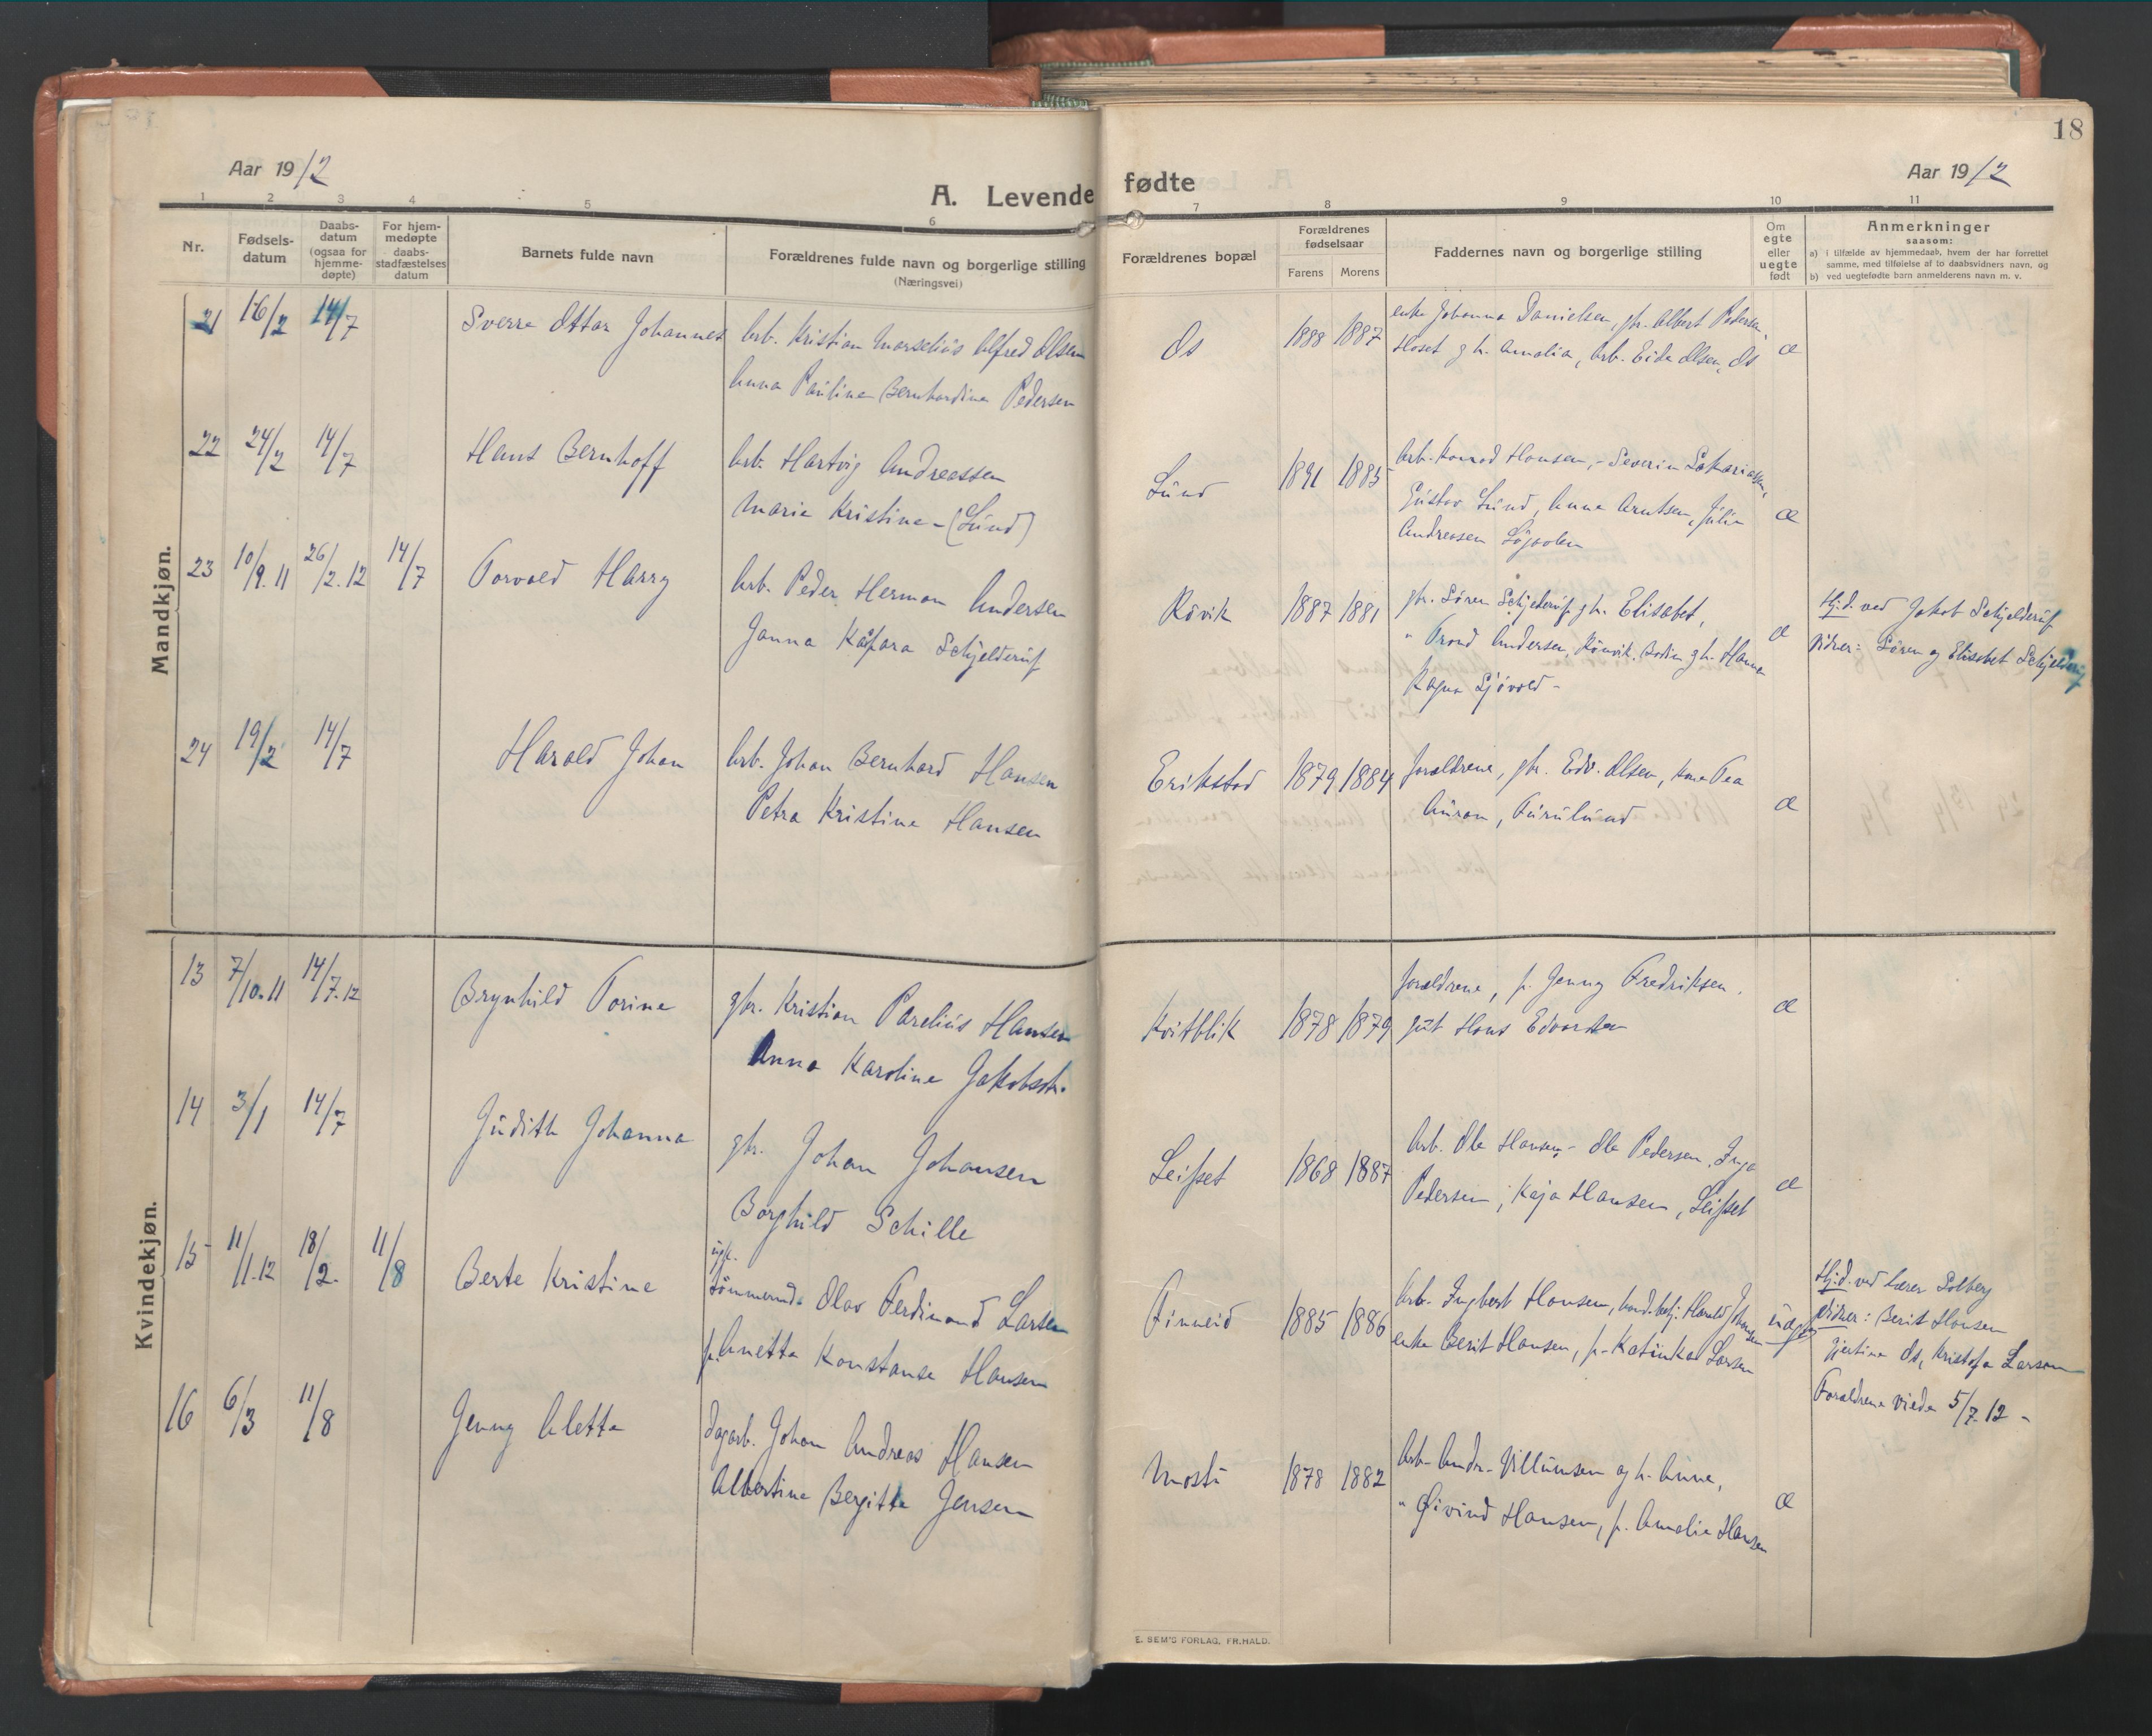 18
Aar 1912
A. Levende fødte
Aar 1912
1 2 3 4 5 6 7 8 9 10 11
Nr.
Fødsels-
datum
Daabs-
datum
(ogsaa for
hjemme-
døpte)
For hjem-
medøpte
daabs-
stadfæstelses
datum
Barnets fulde navn
Forældrenes fulde navn og borgerlige stilling
(Næringsvei)
Forældrenes bopæl
Forældrenes
fødselsaar
Farens Morens
Faddernes navn og borgerlige stilling
Om
egte
eller
uegte
født
Anmerkninger
saasom:
a) i tilfælde av hjemmedaab, hvem der har forrettet
samme, med tilføielse af to daabsvidners navn, og
b) ved uegtefødte barn anmelderens navn m. v.
Mandkjøn.
21 16/2 14/7 Sverre Ottar Johannes Arb. Kristian Marselius Alfred Olsen
Anna Pauline Bernhardine Pedersen
Os 1888 1887 enke Johanna Danielsen, gbr. Albert Pedersen
Hoset g h. Amalia, Arb. Eide Olsen, Os æ
22 24/2 14/7 Hans Bernhoff Arb. Hartvig Andreassen
Marie Kristine - (Lund)
Lund 1891 1885 Arb. Konrad Hansen, - Severin Sakariassen,
Gustav Lund, Anna Arntsen, Julie
Andreasen æ
23 10/9.11 26/2.12 14/7 Torvald Harry Arb. Peder Herman Andersen
Janna Kaspara Schjelderuf
Røvik 1887 1881 gbr. Søren Schjelderuf g h. Elisabet,
" Trond Andersen, Rønvik, Bodin g h. Hanna
Ragna Sjøvold - æ
Hj.d. ved Jakob Schjelderuf
Vidner: Søren og Elisabet Schjelderuf
24 19/2 14/7 Harald Johan Arb. Johan Bernhard Hansen
Petra Kristine Hansen
Erikstad 1879 1884 forældrene, gbr. Edv. Olsen, kone Tea
Furulund æ
Kvindekjøn.
13 7/10.11 14/7.12 Brynhild Torine gbr. Kristian Parelius Hansen
Anna Karoline Jakobsdtr.
Kvitblik 1878 1879 forældrene, p. Jenny Fredriksen.
gut Hans Edvardsen æ
14 3/1 14/7 Judith Johanna gbr. Johan Johansen
Borghild Schille
Leifset 1868 1887 Arb. Ole Hansen - Ole Pedersen, Inga
Pedersen, Kaja Hansen, Leifset æ
15 11/1.12 18/2. 11/8 Berte Kristine ugk.
tømmermd. Olav Ferdinand Larsen
p. Anetta Konstanse Hansen
Finneid 1885 1886 Arb. Ingbert Hansen, hand.betj. Harald Johansen
enke Berit Hansen, p. Katinka Larsen uægte
Hj.d. ved Lærer Solberg
Vidner: Berit Hansen
Gjertine Os, Kristofa Larsen
Forældrene viede 5/7.12 -
16 6/3 11/8 Jenny Aletta Dagarb. Johan Andreas Hansen
Albertine Bergitte Jensen
Mosti 1878 1882 Arb. Andr. Villumsen og h. Anne,
" Øivind Hansen, p. Amalie Hansen æ
E. SEM'S FORLAG, FR.HALD.